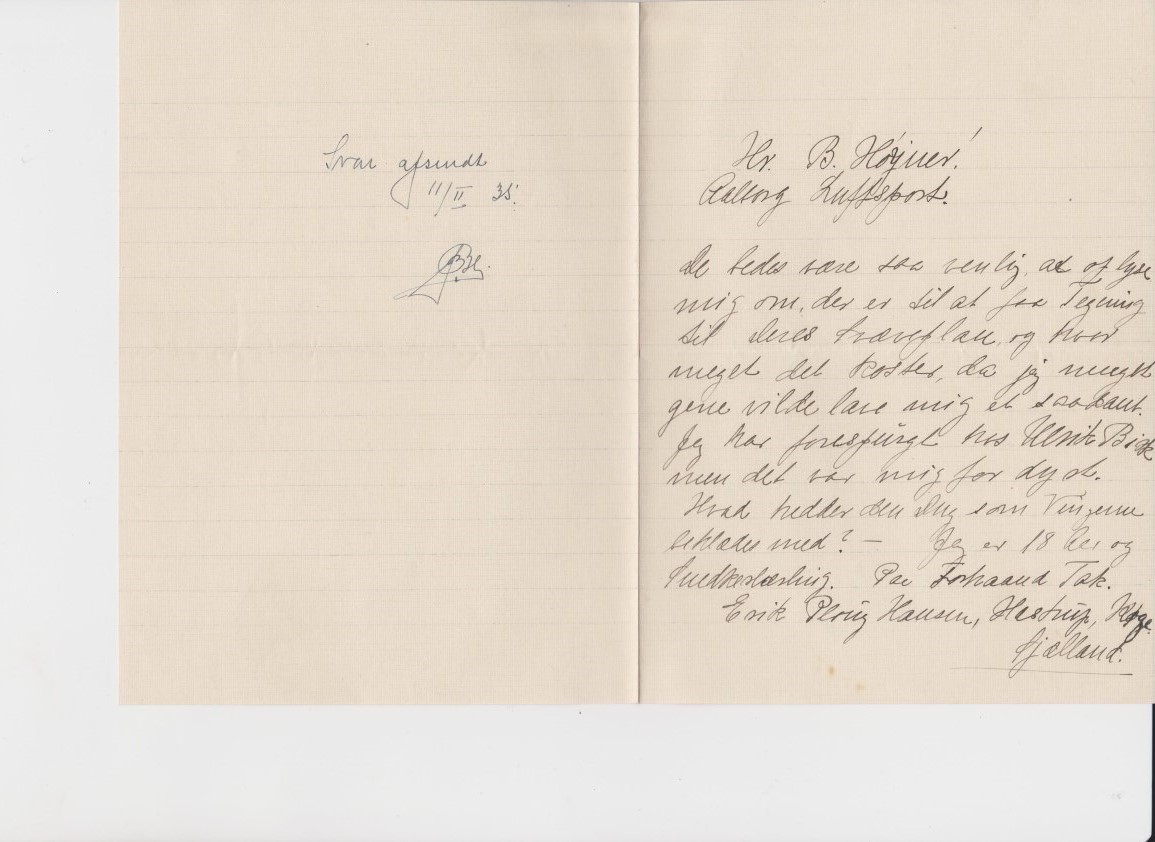 Svar afsendt
11/II 35.
Hr. B. Højner!
Aalborg Luftsport.
De bedes være saa venlig, at oplyse
mig om, der er til at faa Tegning
til Deres Svæveplan, og hvor
meget det koster, da jeg meget
gerne vilde lave mig et saadant.
Jeg har forespurgt hos Ulrik Birk
men det var mig for dyrt.
Hvad hedder den Dug som Vingerne
beklædes med? — Jeg er 18 Aar og
Snedkerlærling. Paa Forhaand Tak.
Erik Ploug Hansen, Hastrup, Køge.
Sjælland.